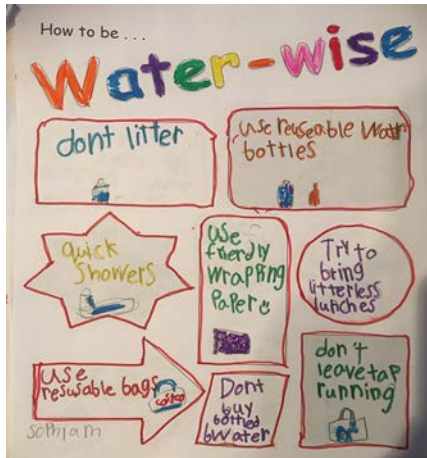 How to be . . .
Water-wise
dont litter
use reuseable Watr
bottles
quick
showers
Use
frierdly
wrapping
Paper
Try to
bring
litterless
lunches
use
resusable bags
costco
Dont
buy
bottled
bwater
don't
leave tap
running